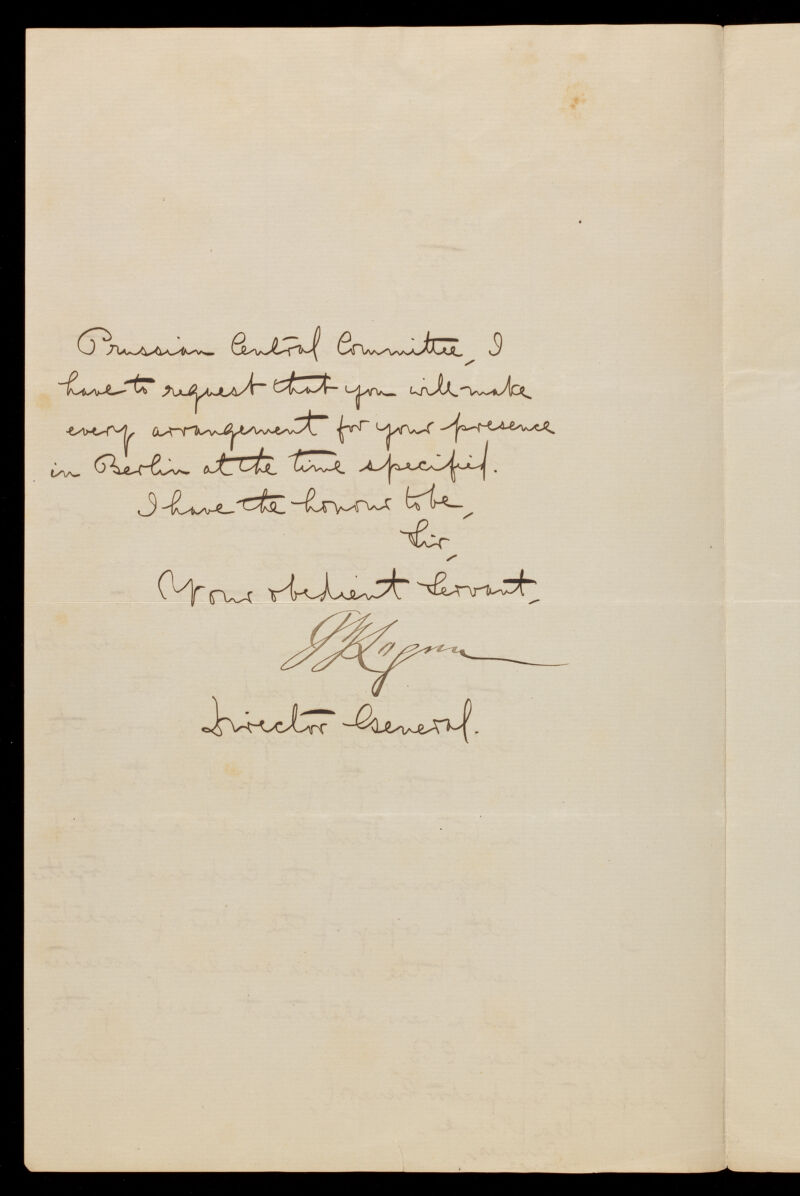 Prussian Central Committee, I
have to request that you will make
every arrangement for your presence
in Berlin at the time specified.
I have the honour to be,
Sir,
Your obedient Servant,
Director General.